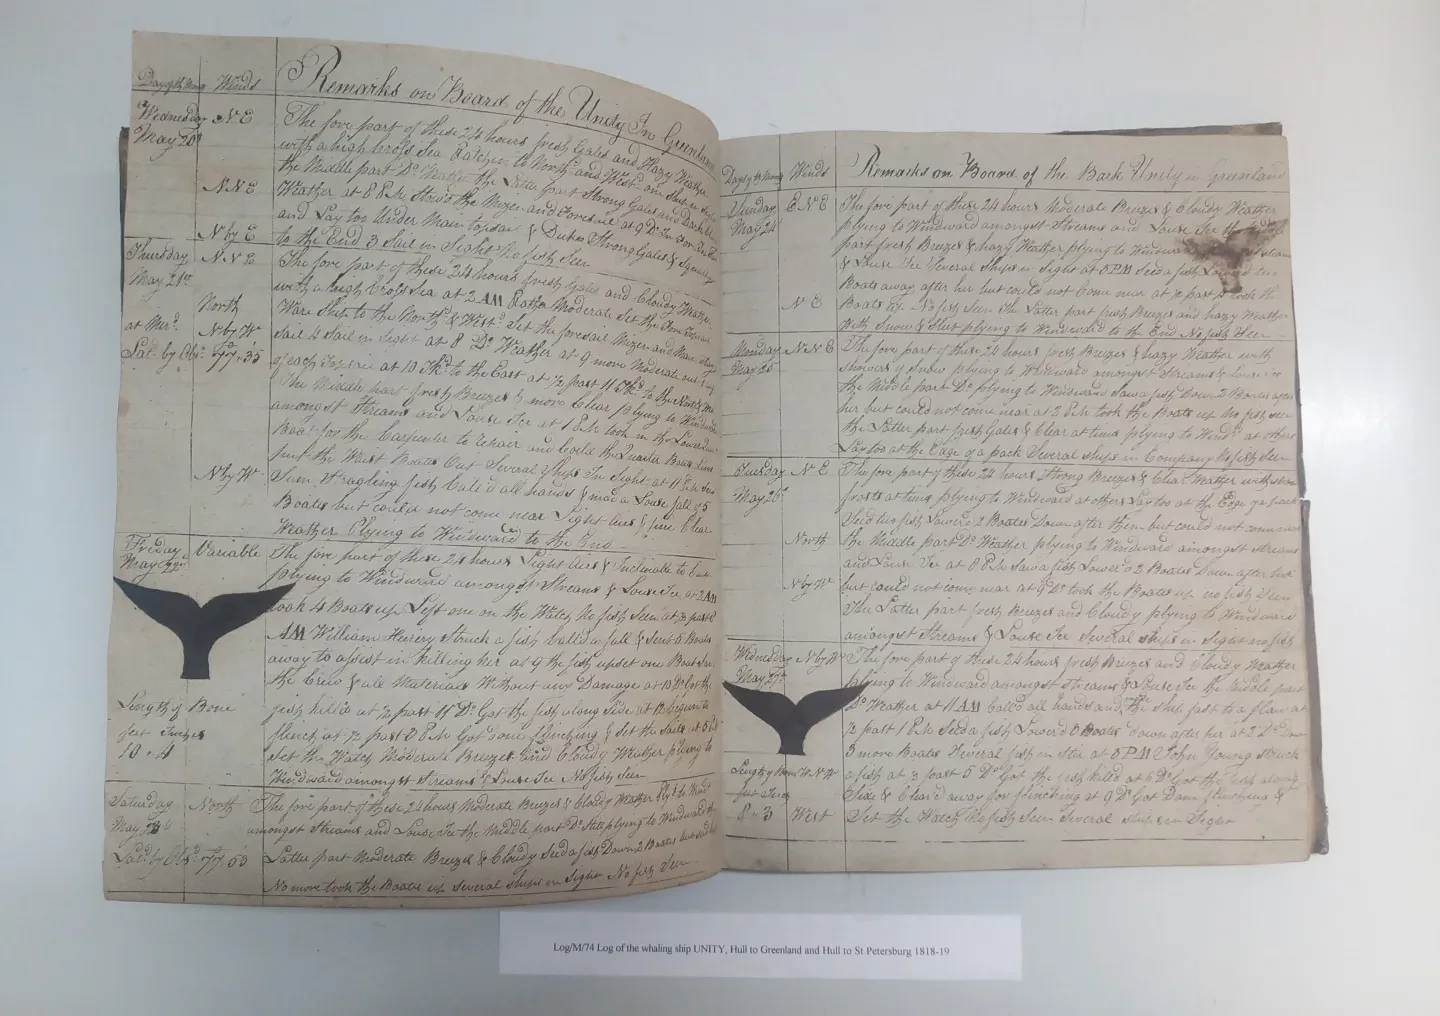 Day of the Month Winds Remarks on Board of the Unity In Greenland
Wednesday N E The fore part of these 24 hours fresh Gales and Hazy Weather
May 20th with a high Cross Sea
the Middle part Do Weather the Latter part Strong Gales and
N N E Weather at 8 P.M Stowd the Mizen and Foresail at 9 Do
and Lay too Under Main topsail & Strong Gales & Squally
N by E to the End 3 Sail in Sight No fish Seen
Thursday N N E The fore part of these 24 hours fresh Gales and Cloudy Weather
May 21st with a high Cross Sea at 2 AM Rather Moderate Set the
North Ware Ship to the North & West Set the foresail Mizen and Main
at Merd N by W Sail 4 Sail in Sight at 8 Do Weather at 9 more Moderate out
Latd by Obs 77,,35 of each Topsail at 10 Tkd to the East at ½ past 11 Tkd to the North &
The Middle part fresh Breezes & more Clear plying to Windward
amongst Streams and Louse Ice at 1 P.M took in the
Boat for the Carpenter to Repair and the Quarter Boat
put the Waist Boats Out Several Ships In Sight at 11 P.M Seen
N by W Sum Stragling fish Call'd all hands & mad a Louse fall of 5
Boates but could not come near Light Aires & fine Clear
Weather Plying to Windward to the End
Friday Variable The fore part of these 24 hours Light Aires & Inclinable to
May 22nd plying to Windward amongst Streams & Louse Ice at 2 AM
took 4 Boats up Left one on the Watch No fish Seen at ½ past 8
AM William Henery Struck a fish Called a fall & Sent 6 Boates
away to assist in killing her at 9 the fish upset one Boat
the Crew & all Materials Without any Damage at 10 Do Got the
Length of Bone fish kill'd at ½ past 11 Do Got the fish along Side at 12 begun to
feet Inches flinch at ½ past 2 P.M Got done flinching & Set the Sails at 5
10 - 4 Set the Watch Moderate Breezes and Cloudy Weather plying to
Windward amongst Streams & Louse Ice No fish Seen
Saturday North The fore part of these 24 hours Moderate Breezes & Cloudy Weather Plying to Wind
May 23d amongst Streams and Louse Ice the Middle part Do Still plying to Windward the
Latd by Obsd 77,,53 Latter part Moderate Breezes & Cloudy Seed a fish Down 2 Boates but
No more took the Boates up Several ships in Sight No fish Seen
Days of the Month Winds Remarks on Board of the Bark Unity in Greenland
Sunday E N E The fore part of these 24 hours Moderate Breezes & Cloudy Weather
May 24th plying to Windward amongst Streams and Louse Ice the
part fresh Breezes & hazy Weather plying to Windward
& Louse Ice Several Ships in Sight at 8 PM Seed a fish Lowered two
Boats away after her but could not Come near at ½ past took the
N E Boats up No fish Seen The Latter part fresh Breezes and hazy Weather
With Snow & Sleet plying to Windward to the End No fish Seen
Monday N N E The fore part of these 24 hours fresh Breezes & hazy Weather with
May 25th showers of snow plying to Windward amongst Streams & Louse Ice
the Middle part Do plying to Windward Saw a fish Down 2 Boates after
her but could not come near at 2 P.M took the Boats up No fish seen
the Latter part fresh Gales & Clear at times plying to Windd at others
Lay too at the Edge of a pack Several ships in Company No fish Seen
Tuesday N E The fore part of these 24 hours Strong Breezes & Clear Weather with
May 26th frost at times plying to Windward at others Lay too at the Edge of a pack
Seed two fish Lowerd 2 Boates Down after them but could not come near
North the Middle part Do Weather plying to Windward amongst Streams
and Louse Ice at 8 P.M Saw a fish Lower'd 2 Boates Down after her
N by W but could not come near at 9 Do took the Boates up no fish Seen
The Latter part fresh Breezes and Cloudy plying to Windward
amongst Streams & Louse Ice Several ships in Sight no fish
Wednesday N by W The fore part of these 24 hours fresh Breezes and Cloudy Weather
May 27th plying to Windward amongst Streams & Louse Ice the Middle part
Do Weather at 11 AM Called all hands and the ship fast to a flaw at
½ past 1 P.M Seed a fish Lowerd 8 Boates down after her at 2 Do Down
3 more Boates Several fish in Site at 5 PM John Young struck
Length of Bone W N W a fish at ½ past 5 Do Got the fish killed at 6 Do Got the fish along
feet Inch Side & Clear'd away for flinching at 9 Do Got Done flinching &
8 - 3 West Set the Watch No fish Seen Several ships in Sight
Log/M/74 Log of the whaling ship UNITY, Hull to Greenland and Hull to St Petersburg 1818-19